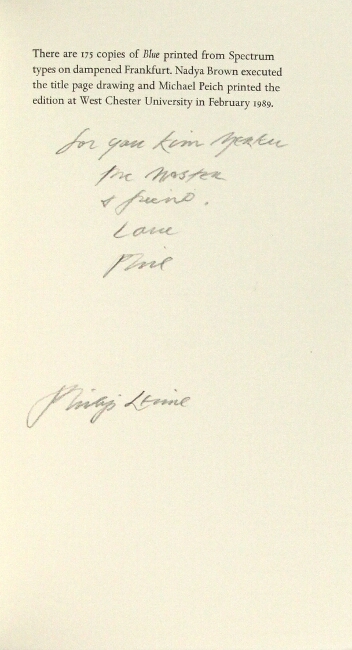 There are 175 copies of Blue printed from Spectrum
types on dampened Frankfurt. Nadya Brown executed
the title page drawing and Michael Peich printed the
edition at West Chester University in February 1989.
for you Kim Merker
the master
& friend.
Love
Phil
Philip Levine